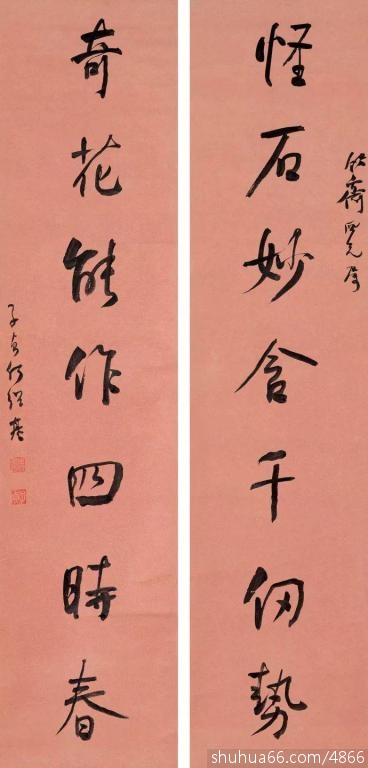 怪石妙含千仞勢
奇花能作四時春
子貞何紹基
shuhua66.com/4866